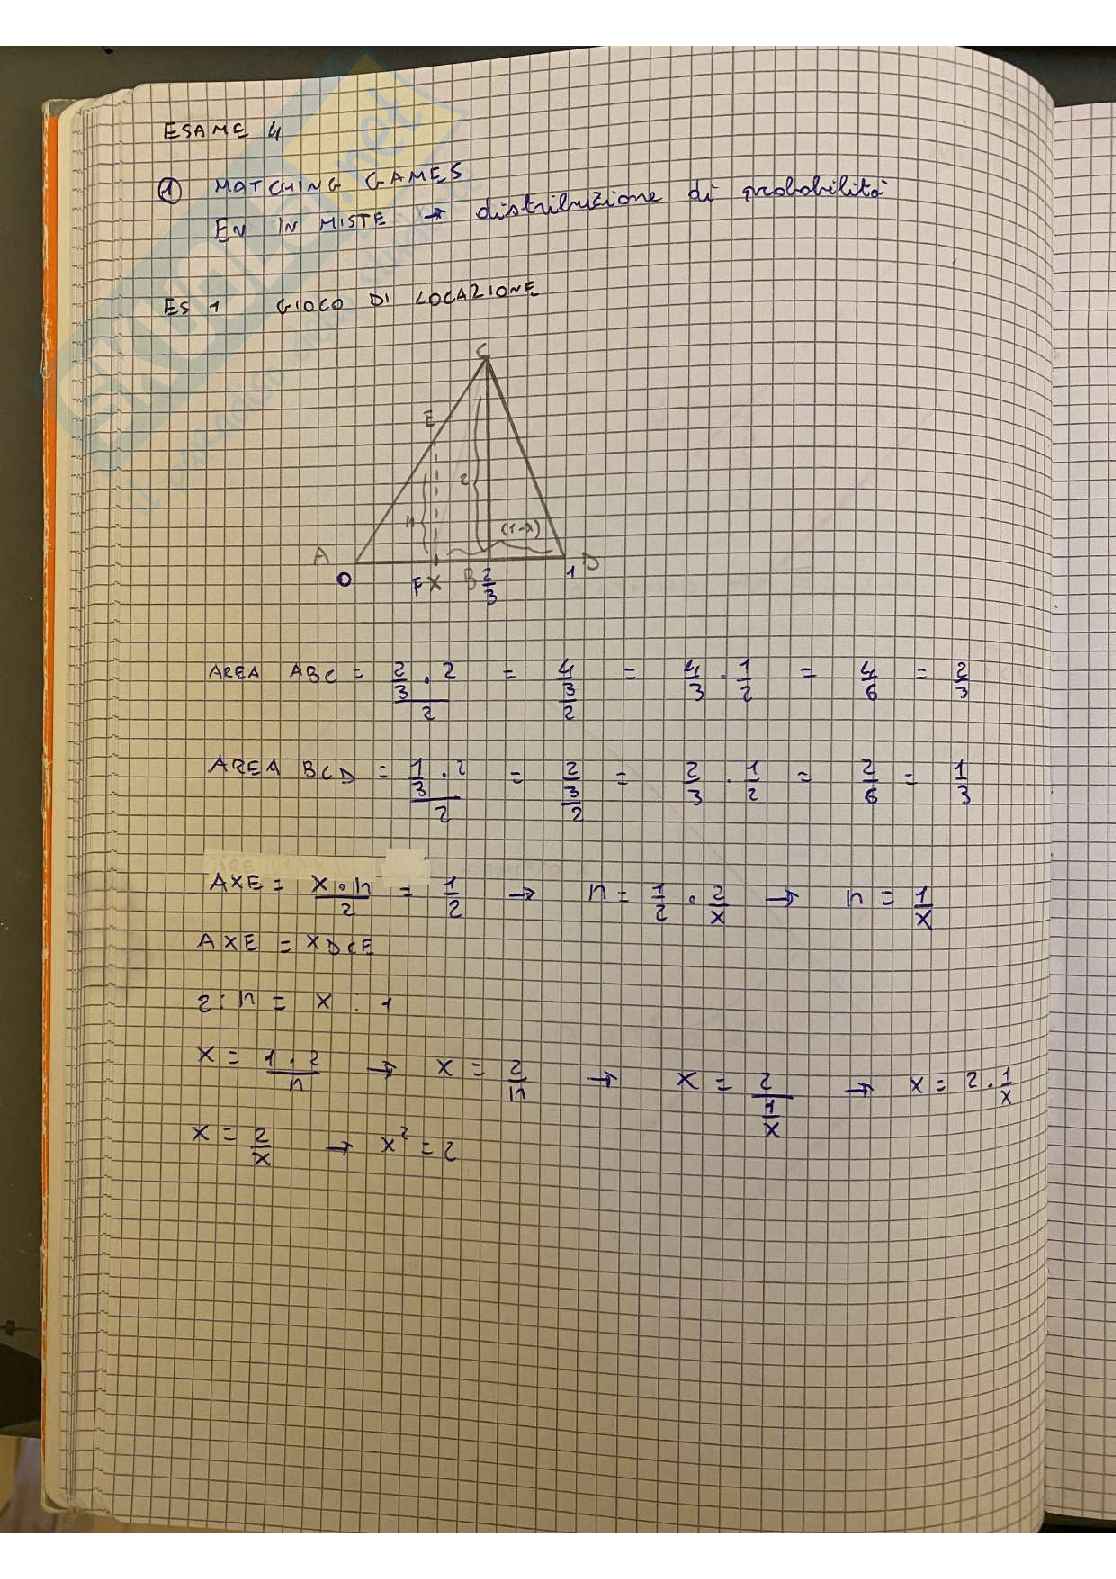 ESAME 4
① MATCHING GAMES
EN IN MISTE → distribuzione di probabilità
ES 1 GIOCO DI LOCAZIONE
C
E
2
h
(1-x)
A
D
0
F X
B 2/3
1
AREA ABC = (2/3 · 2)/2 = (4/3)/2 = 4/3 · 1/2 = 4/6 = 2/3
AREA BCD = (1/3 · 2)/2 = (2/3)/2 = 2/3 · 1/2 = 2/6 = 1/3
AXE = (x · h)/2 = 1/2 → h = 1/2 · 2/x → h = 1/x
AXE = XDCE
2 : h = x : 1
x = (1 · 2)/h → x = 2/h → x = 2/(1/x) → x = 2 · 1/x
x = 2/x → x² = 2